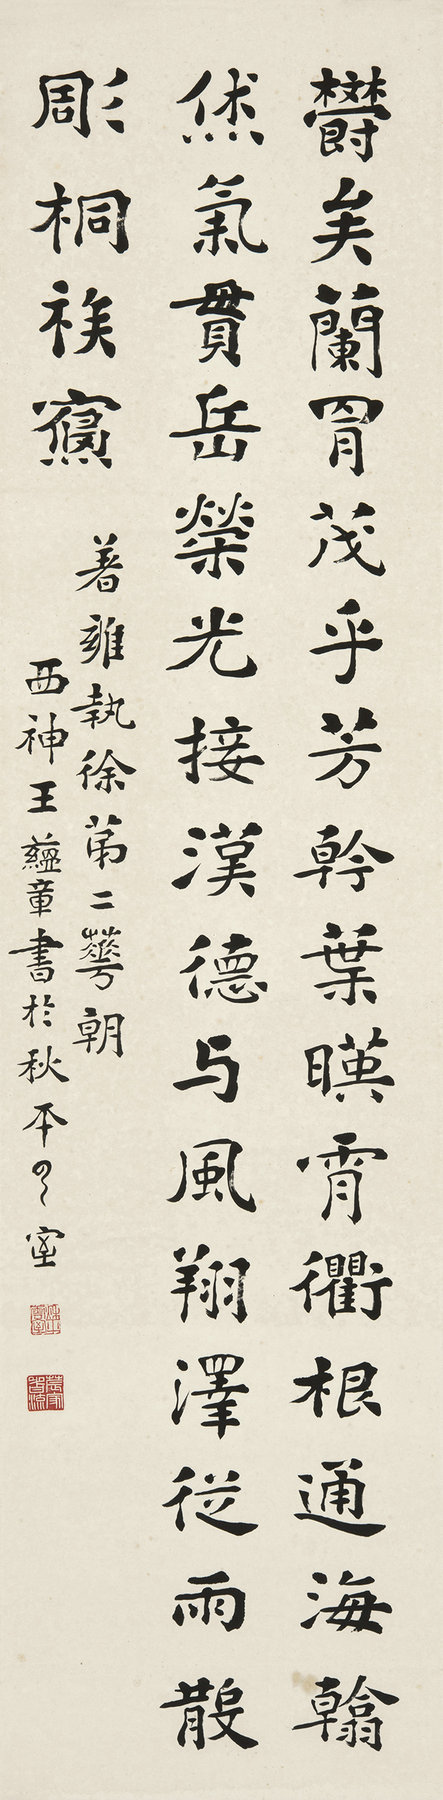 欝矣蘭胃茂乎芳幹葉暎霄衢根通海翰
恷氣貫岳榮光接漢德与風翔澤從雨散
彫桐祑寫
著雍執徐第二蕚朝
西神王蘊章書於秋平雲室